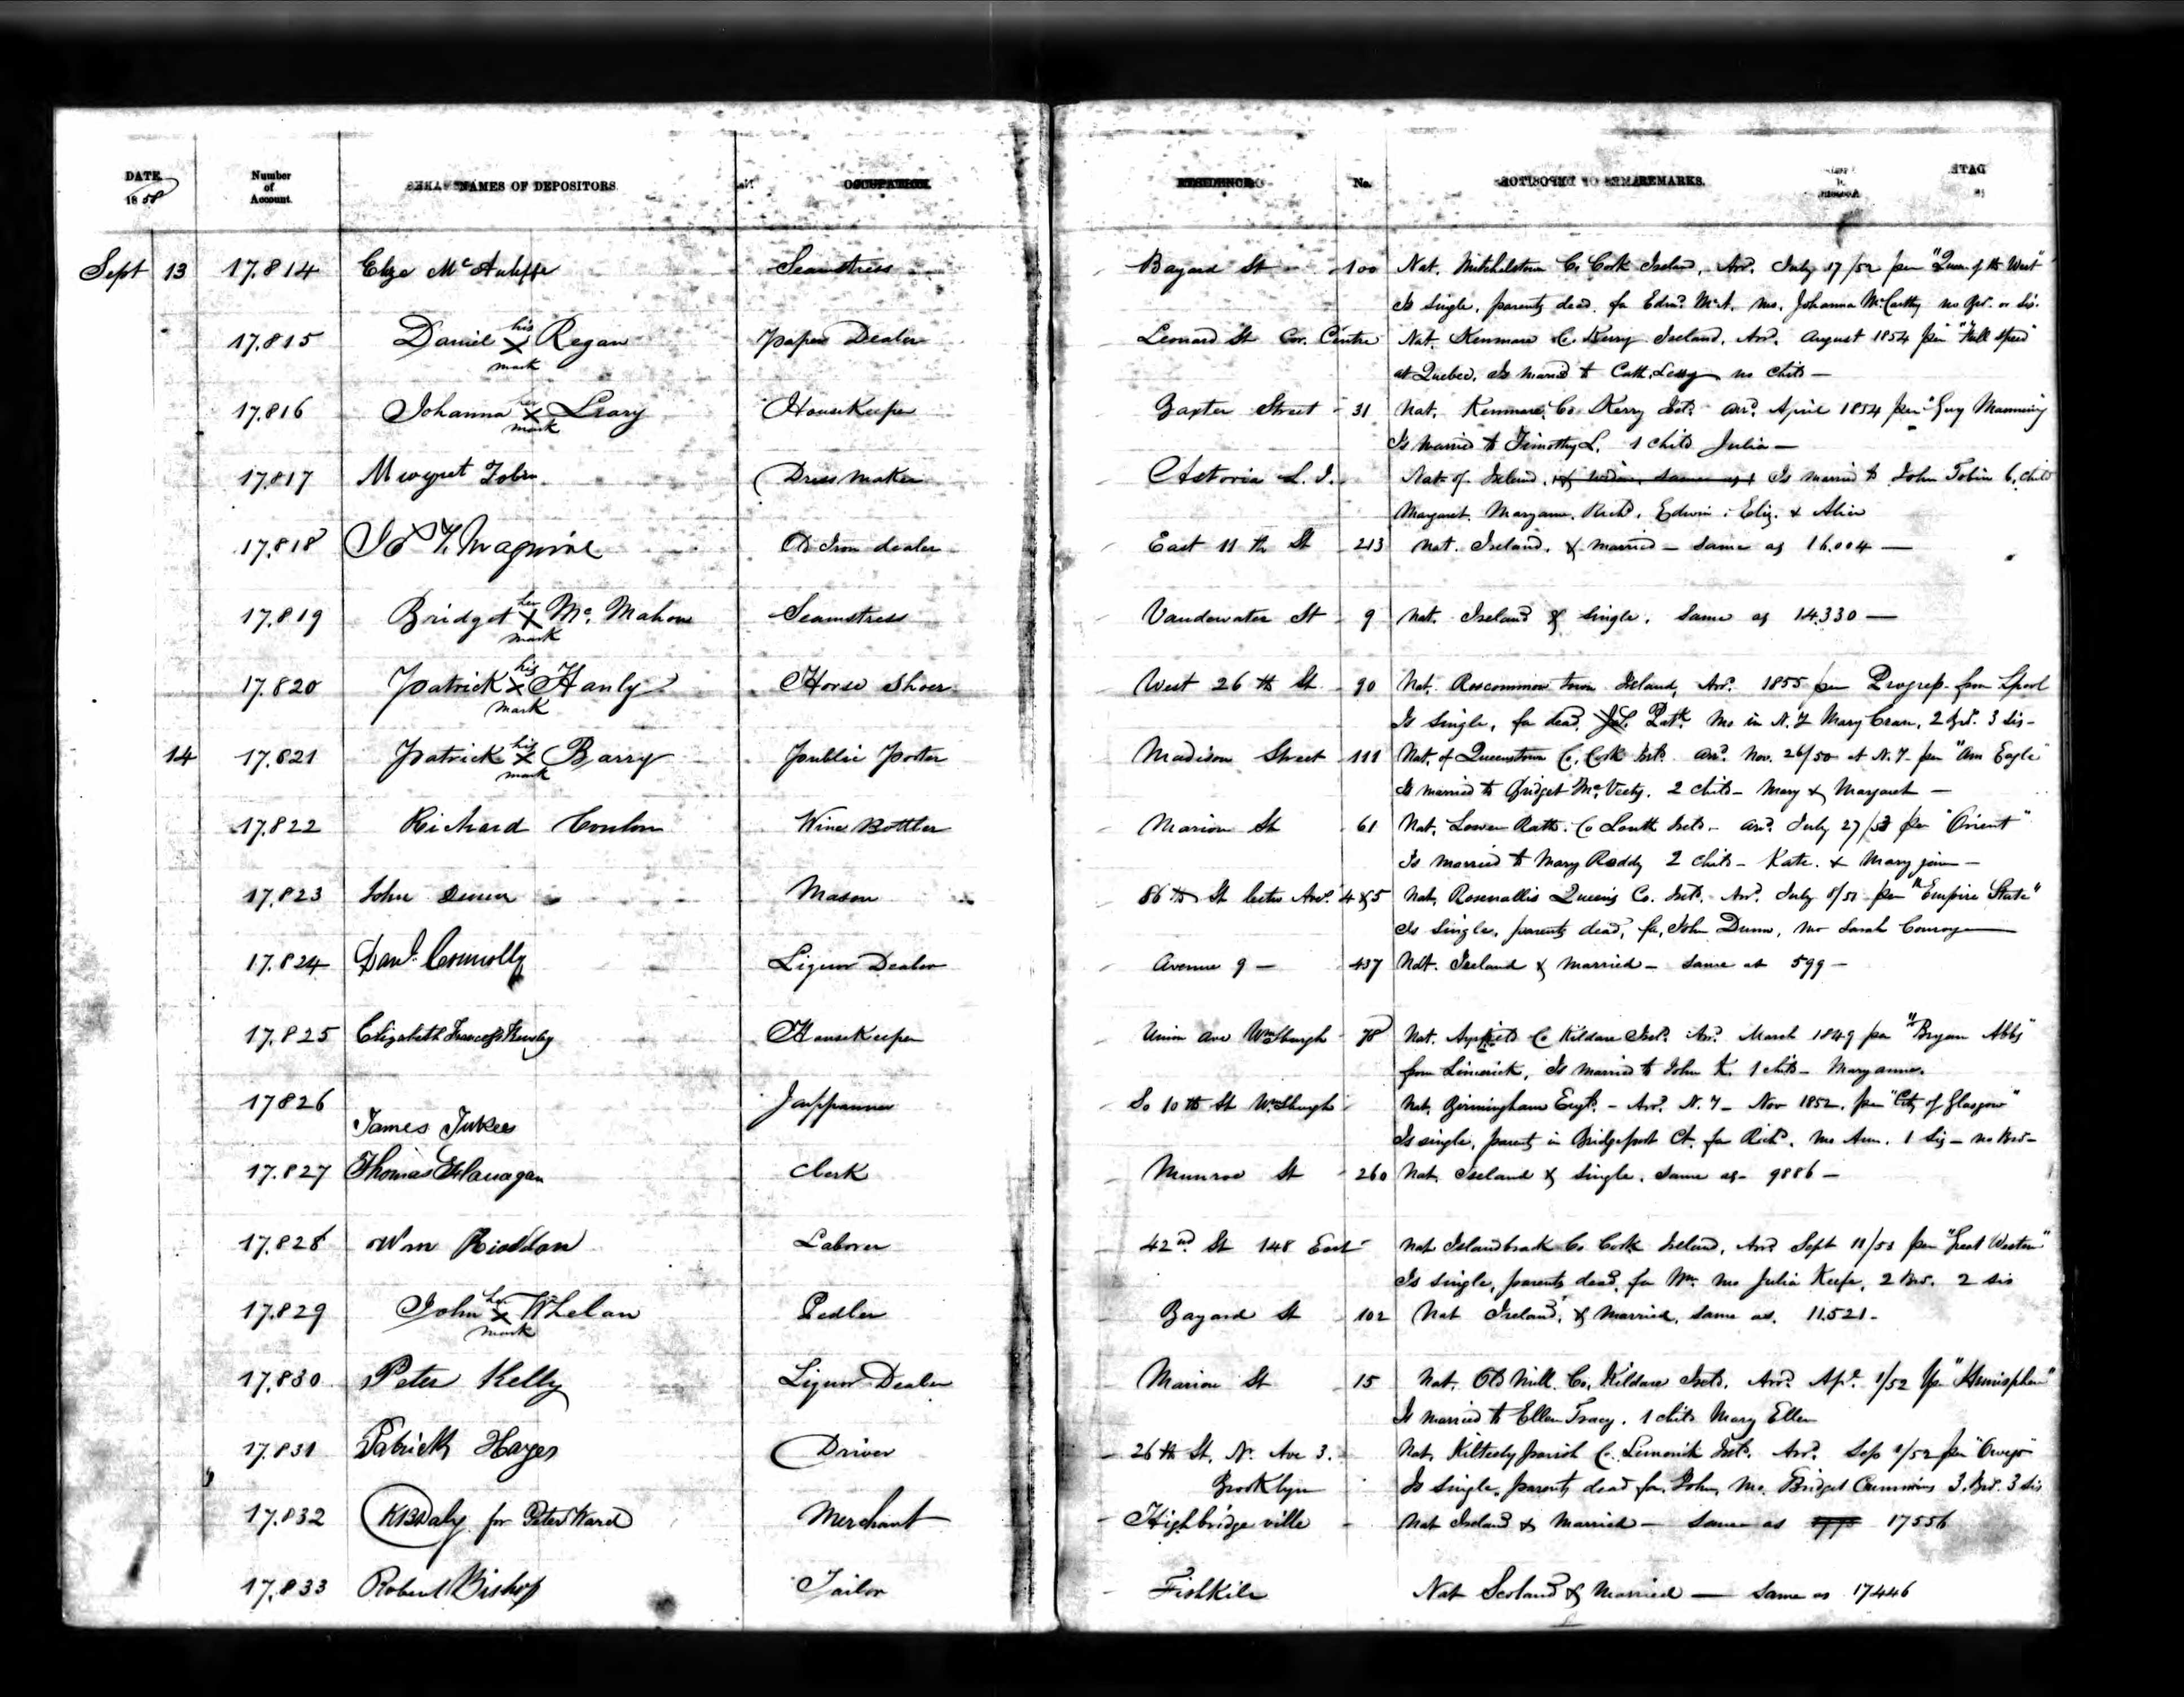 DATE 1858 Number of Account. NAMES OF DEPOSITORS OCCUPATION. RESIDENCE No. REMARKS.
Sept 13 17.814 Eliza McAuliffe Seamstress Bayard St 100 Nat. Mitchelstown Co Cork Ireland, Arrd. July 17/52 per "Queen of the West"
Is single, parents dead, fa Edmd. McA. mo. Johanna McCarthy no Br. or Sis.
17.815 Daniel his X mark Regan Paper Dealer Leonard St Cor. Centre Nat. Kenmare Co. Kerry Ireland, Arrd. August 1854 per
at Quebec, Is married to Cath. no child —
17.816 Johanna her X mark Leary HouseKeeper Baxter Street 31 Nat. Kenmare, Co Kerry Ireld. arrd. April 1854 per "Guy Mannering
Is married to Timothy L. 1 child Julia —
17.817 Margret Tobin Dress Maker Astoria L. I. Nat. of Ireland, Is married to John Tobin 6 child
Margaret. Maryann. Richd. Edwin. Eliz. & Alice
17.818 Maguire Old Iron dealer East 11th St 213 Nat. Ireland, & married — same as 16.004 —
17.819 Bridget her X mark Mc Mahon Seamstress Vandewater St 9 Nat. Ireland & single. same as 14.330 —
17.820 Patrick his X mark Hanly Horse Shoer West 26th St 90 Nat. Roscommon town Ireland, Arrd. 1855 per Progress from Lpool
Is single, fa dead, Patk. Mo in N.Y Mary Cran, 2 Br. 3 sis —
14 17.821 Patrick his X mark Barry Public Porter Madison Street 111 Nat. of Queenstown Co. Cork Ireld. arrd. Nov. 26/50 at N.Y. per "Am Eagle"
Is married to Bridget 2 child — Mary & Margaret —
17.822 Richard Conlon Wine Bottler Marion St 61 Nat. Lower Rath. Co Louth Ireld. — arrd. July 27/53 per "Orient"
Is married to Mary Roddy 2 child — Kate. & Mary jane —
17.823 John Dunn Mason 86th St betw Avs. 4 & 5 Nat. Rosenallis Queens Co. Ireld. Arrd. July 8/51 per "Empire State"
Is Single, parents dead, fa, John Dunn, mo Sarah Conroy
17.824 Danl. Connolly Liquor Dealer Avenue 9 — 437 Nat. Ireland & married — same as 599 —
17.825 Elizabeth Frances HouseKeeper Union ave Wmsburgh 78 Nat. Co Kildare Ireld. Arrd. March 1849 per "Bryan Abbs"
from Limerick, Is married to John K. 1 child — Maryanne.
17826 James Jukes Jappanner So 10th St Wmsburgh Nat. Birmingham Engld. — Arrd. N.Y — Nov 1852. per "City of Glasgow"
Is single, parents in Bridgeport Ct. fa Richd. mo Ann. 1 Sis — no Bro —
17.827 Thomas Flanagan Clerk Munroe St 260 Nat. Ireland & single. same as — 9886 —
17.828 Wm Riordan Laborer 42nd St 148 East Nat Islandbrack Co Cork Ireland, Arrd Sept 11/51 per "Great Western"
Is single, parents dead, fa Wm. mo Julia Keefe, 2 Bro. 2 sis
17.829 John X mark Whelan Pedler Bayard St 102 Nat Ireland, & married, same as. 11.521 —
17.830 Peter Kelly Liquor Dealer Marion St 15 Nat. Old Mill. Co. Kildare Ireld. Arrd. Apl. 1/52 per "Hemisphere"
Is married to Ellen Tracy. 1 child Mary Ellen
17.831 Patrick Hayes Driver 26th St, Nr. Ave 3. Nat. Kilteely parish Co. Limerick Ireld. Arrd. Sep 1/52 per
Brooklyn Is single, parents dead fa. John, mo. Bridget Cummins 3. Br. 3 sis
17.832 KBDaly for Peter Ward Merchant Highbridgeville Nat Ireland & Married — same as 17556
17.833 Robert Bishop Tailor Fishkile Nat Scotland & Married — same as 17446